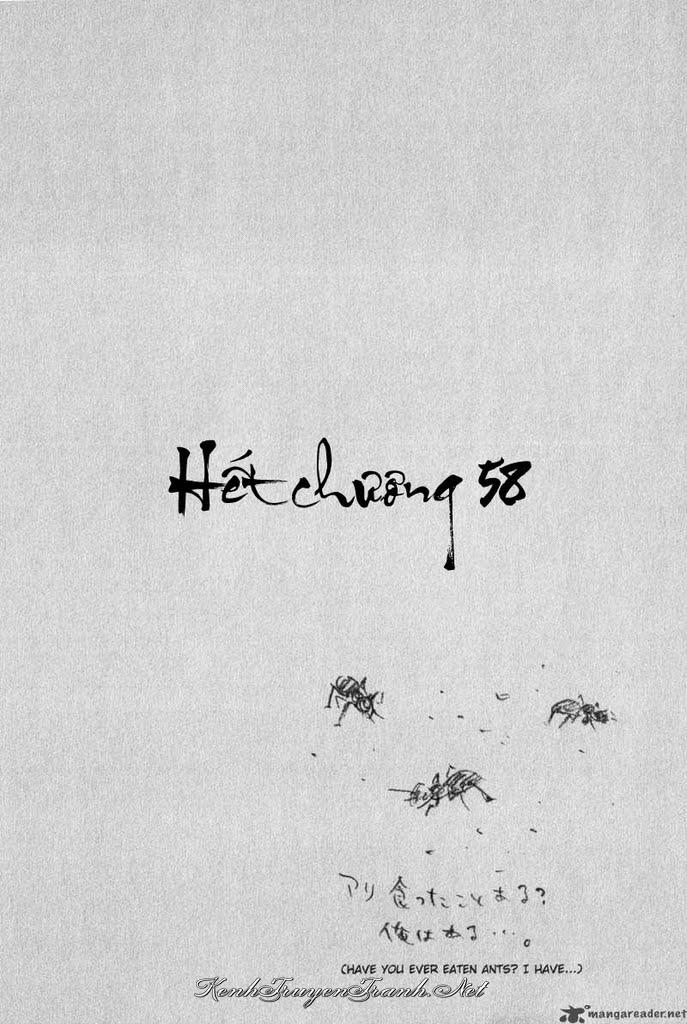 Hết chương 58
アリ 食ったことある?
俺はある…。
(HAVE YOU EVER EATEN ANTS? I HAVE...)
KenhTruyenTranh.Net
mangareader.net